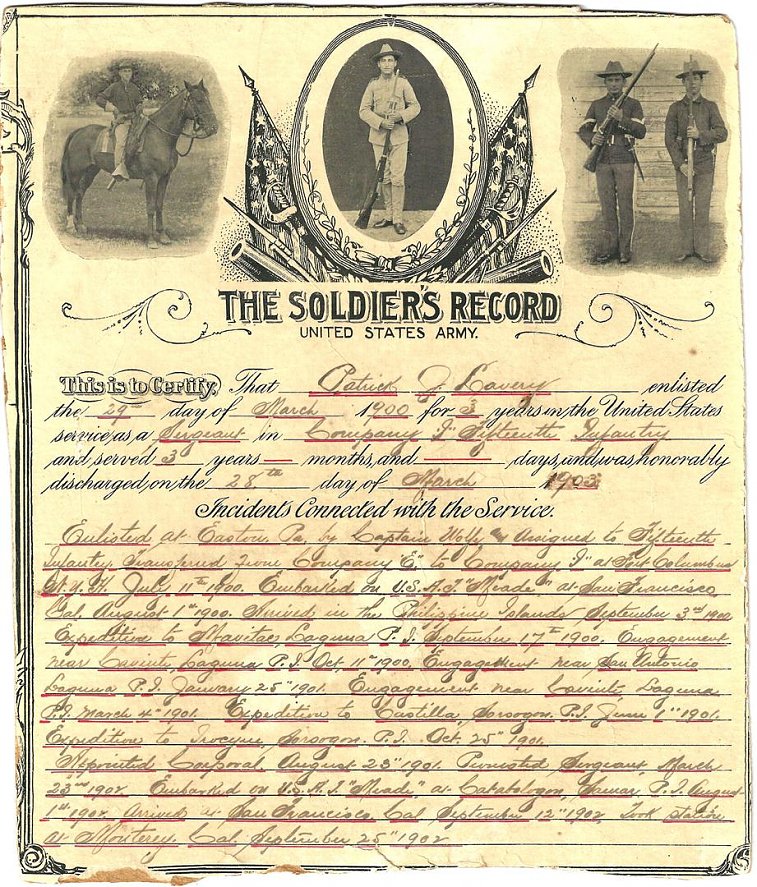 THE SOLDIER'S RECORD
UNITED STATES ARMY.
This is to Certify, That Patrick J. Lavery enlisted
the 29th day of March 1900 for 3 years in the United States
service, as a Sergeant in Company I" Fifteenth Infantry
and served 3 years — months, and — days, and was honorably
discharged, on the 28th day of March 1903
Incidents Connected with the Service.
Enlisted at Easton Pa. by Captain Wolf Assigned to Fifteenth
Infantry. Transferred from Company "E." to Company I" at Fort Columbus
N.Y.H. July 11th 1900. Embarked on U.S.A.T "Meade" at San Francisco
Cal. August 1st 1900. Arrived in the Philippine Islands September 3rd 1900
Expedition to Mavitac, Laguna P.I. September 17th 1900. Engagement
near Cavinti, Laguna P.I. Oct. 11th 1900. Engagement near San Antonio
Laguna P.I. January 25" 1901. Engagement near Cavinti, Laguna,
P.I. March 4th 1901. Expedition to Castilla, Sorsogon. P.I. June 1" 1901.
Expedition to Sorsogon. P.I. Oct. 25" 1901.
Appointed Corporal August 23" 1901. Promoted Sergeant March
23rd 1902. Embarked on U.S.A.T. "Meade" at Catabalogan, Samar, P.I. August
1st 1902 Arrived at San Francisco, Cal September 12" 1902 Took station
at Monterey. Cal September 25" 1902